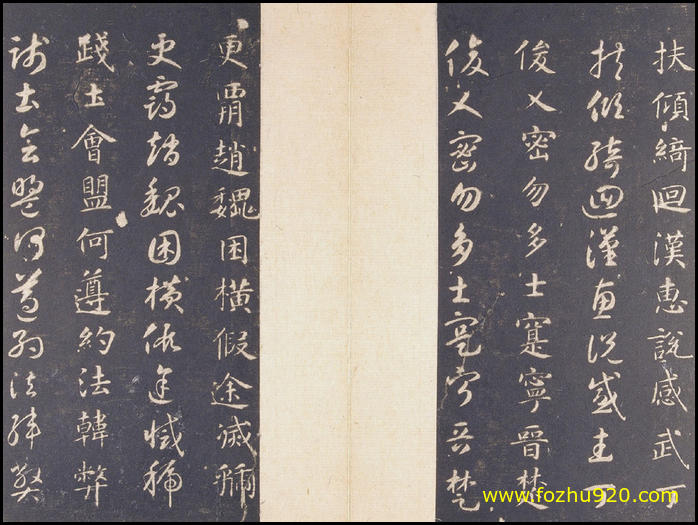 扶傾綺廻漢惠說感武丁
扶傾綺迴漢惠說感武丁
俊乂密勿多士寔寧晉楚
俊乂密勿多士寔寧晉楚
更霸趙魏困橫假途滅虢
更霸趙魏困橫假途滅虢
踐土會盟何遵約法韓弊
踐土會盟何遵約法韓弊
www.fozhu920.com